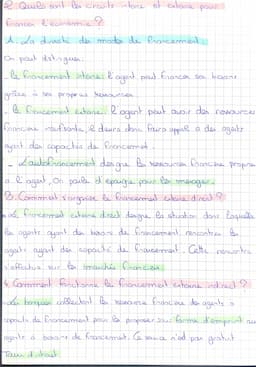 2. Quels sont les circuits interne et externe pour
financer l'économie ?
A. La diversité des modes de financement.
On peut distinguer.
- le financement interne: l'agent peut financer ses besoins
grâce à ses propres ressources.
- le financement externe: l'agent peut avoir des ressources
financière insuffisante, il devra donc faire appel à des agents
ayant des capacités de financement.
- L'autofinancement désigne les ressources financière propre
à l'agent, on parle d'épargne pour les ménages.
B. Comment s'organise le financement externe direct ?
Le financement externe direct désigne la situation dans laquelle
les agents ayant des besoins de financement, rencontrent les
agents ayant des capacités de financement. Cette rencontre
s'effectue sur les marchés financiers
4. Comment fonctionne le financement externe indirect ?
Les banques collectent les ressources financière des agents à
capacité de financement pour les proposer sous forme d'emprunt aux
agents à besoin de financement. Ce service n'est pas gratuit
Taux d'intérêt